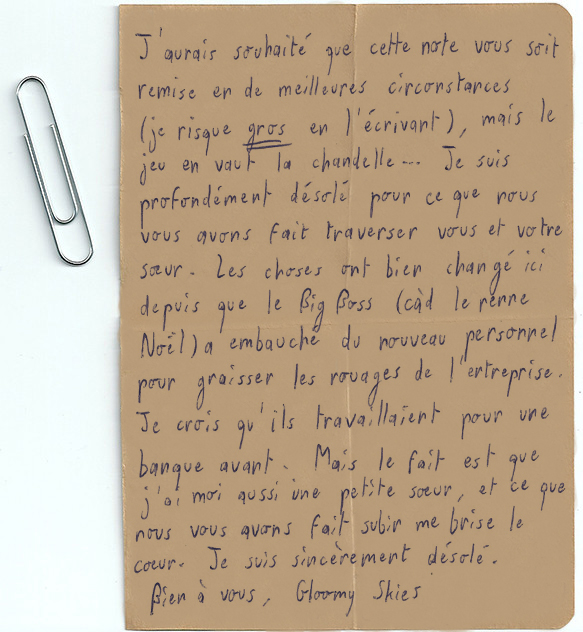 J'aurais souhaité que cette note vous soit
remise en de meilleures circonstances
(je risque gros en l'écrivant), mais le
jeu en vaut la chandelle... Je suis
profondément désolé pour ce que nous
vous avons fait traverser vous et votre
sœur. Les choses ont bien changé ici
depuis que le Big Boss (càd le renne
Noël) a embauché du nouveau personnel
pour graisser les rouages de l'entreprise.
Je crois qu'ils travaillaient pour une
banque avant. Mais le fait est que
j'ai moi aussi une petite sœur, et ce que
nous vous avons fait subir me brise le
cœur. Je suis sincèrement désolé.
Bien à vous, Gloomy Skies